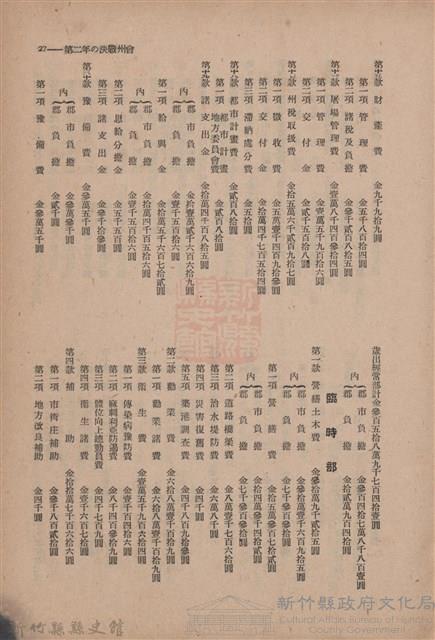 27——第二年の決戰州會
財產費　金九千九拾九圓
第一項　管理費　金五千八百拾四圓
第二項　諸稅及負擔　金參千貳百八拾五圓
屠場管理費　金壹萬八千四百參拾四圓
第一項　管理費　金壹萬五千九百拾六圓
第二項　交付金　金貳千五百拾八圓
州稅取扱費　金拾五萬六千貳百九拾七圓
第一項　徵收費　金五萬壹千四百九拾參圓
第二項　交付金　金拾萬四千七百五拾四圓
第三項　滯納處分費　金五拾圓
都市計畫費　金貳百八拾圓
第一項　都市計畫地方委員會費　金貳百八拾圓
諸支出金　金拾萬四千百八拾五圓
內　郡市負擔　金拾萬貳千六百六拾九圓
郡負擔　金壹千五百拾六圓
第一項　給與金　金拾萬五千六百七拾貳圓
內　郡市負擔　金拾萬四千百五拾六圓
郡負擔　金壹千五百拾六圓
第二項　恩給分擔金　金五千五百圓
第三項　諸支出金　金參千拾參圓
豫備費　金參萬五千圓
內　郡市負擔　金參萬參千圓
郡負擔　金貳千圓
第一項　豫備費　金參萬五千圓
歲出經常部計金參百五拾八萬九千七百四拾壹圓
內　郡市負擔　金參百四拾七萬八千八百壹圓
郡負擔　金拾壹萬九百四拾圓
臨時部
第一款　營繕土木費　金參拾萬九千貳拾五圓
內　郡市負擔
郡負擔　金七千參百拾參圓
第一項　營繕費　金拾五萬參百七拾貳圓
內　郡市負擔
郡負擔　金七千參百拾參圓
第二項　道路橋梁費　金八萬壹千七百六拾四圓
第三項　治水堤防費　金六萬八千圓
第四項　災害復舊費　金四千圓
第五項　築港調查費　金四千八百九拾參圓
第二款　勸業費　金六拾八萬壹千八百九拾圓
第一項　勸業諸費　金六拾八萬壹千八百九拾圓
第三款　衞生費　金壹萬五千九百六拾六圓
第一項　傳染病豫防費　金壹千七百六拾四圓
第二項　麻剌利亞防遏費　金八千四百參拾九圓
第三項　體位向上運動員費　金四千七百九圓
第四項　衞生諸費　金壹千六百七拾圓
第四款　補助　金四拾萬七千七百六拾六圓
第一項　市街庄補助　金參千八百貳拾圓
第二項　地方改良補助　金四千圓
新竹縣縣史館
新竹縣政府文化局
Cultural Affairs Bureau of Hsinchu County Government